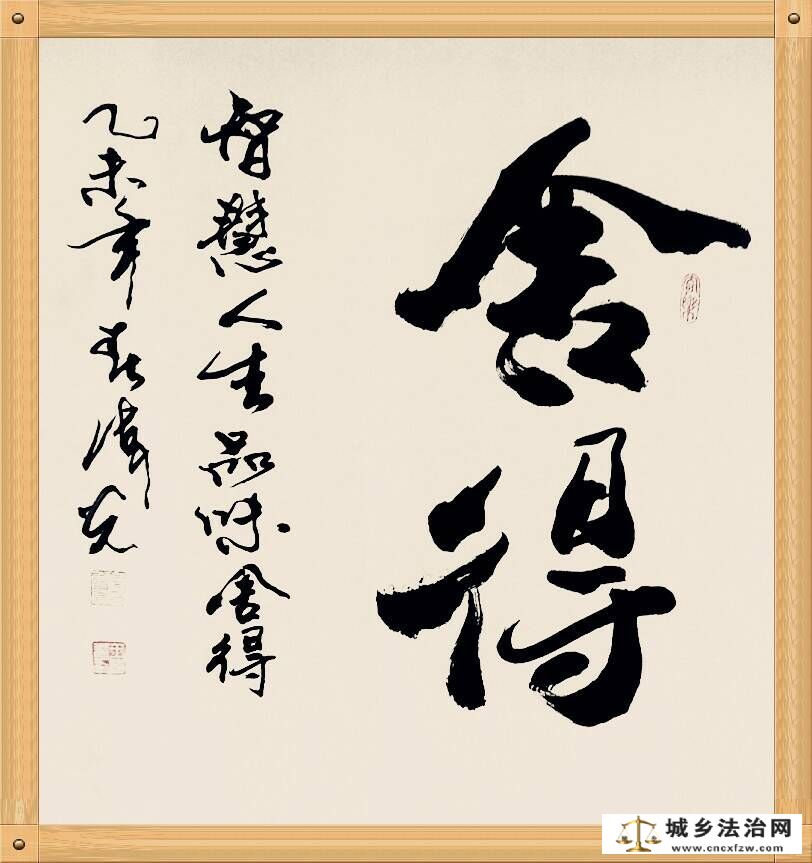 舍得
智慧人生品味舍得
乙未年春偉光
城乡法治网
www.cncxfzw.com